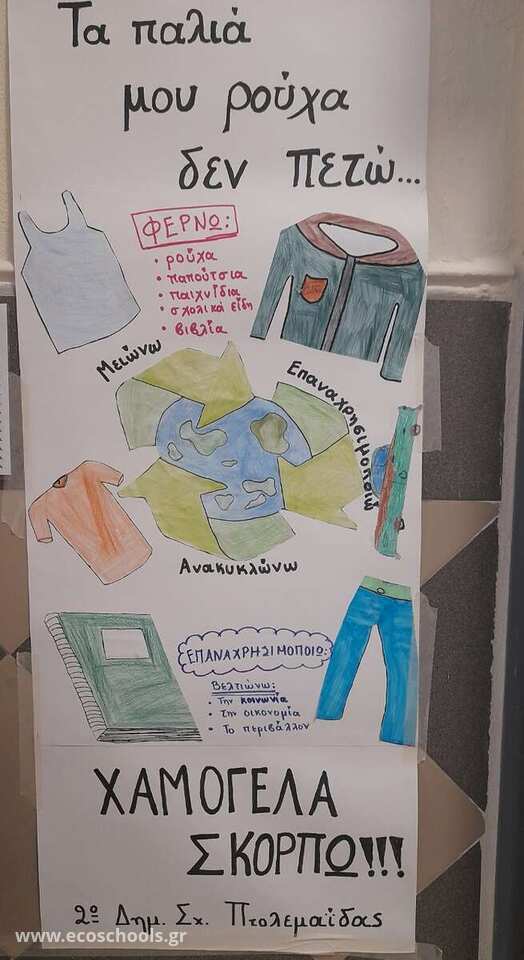 Τα παλιά
μου ρούχα
δεν πετώ...
ΦΕΡΝΩ:
• ρούχα
• παπούτσια
• παιχνίδια
• σχολικά είδη
• βιβλία
Μειώνω
Επαναχρησιμοποιώ
Ανακυκλώνω
ΕΠΑΝΑΧΡΗΣΙΜΟΠΟΙΩ:
Βελτιώνω:
• Την κοινωνία
• Την οικονομία
• Το περιβάλλον
ΧΑΜΟΓΕΛΑ
ΣΚΟΡΠΩ!!!
2º Δημ. Σχ. Πτολεμαΐδας
www.ecoschools.gr